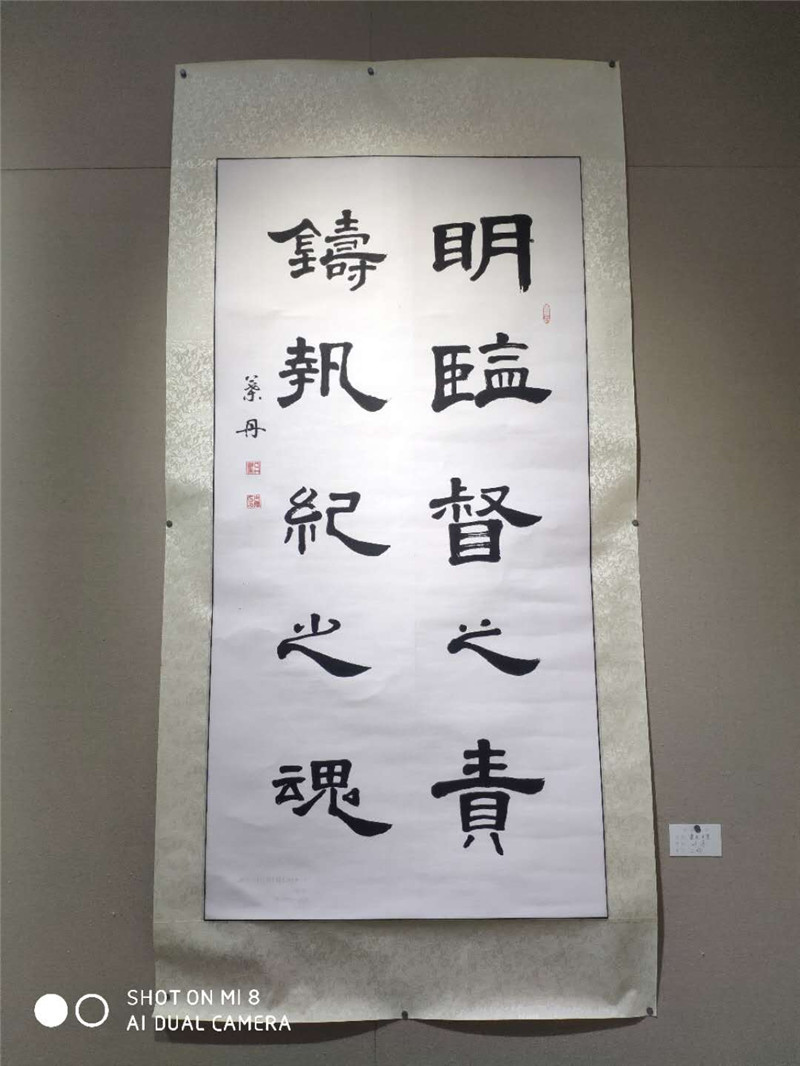 明臨督之責
鑄執紀之魂
蔡丹
SHOT ON MI 8
AI DUAL CAMERA